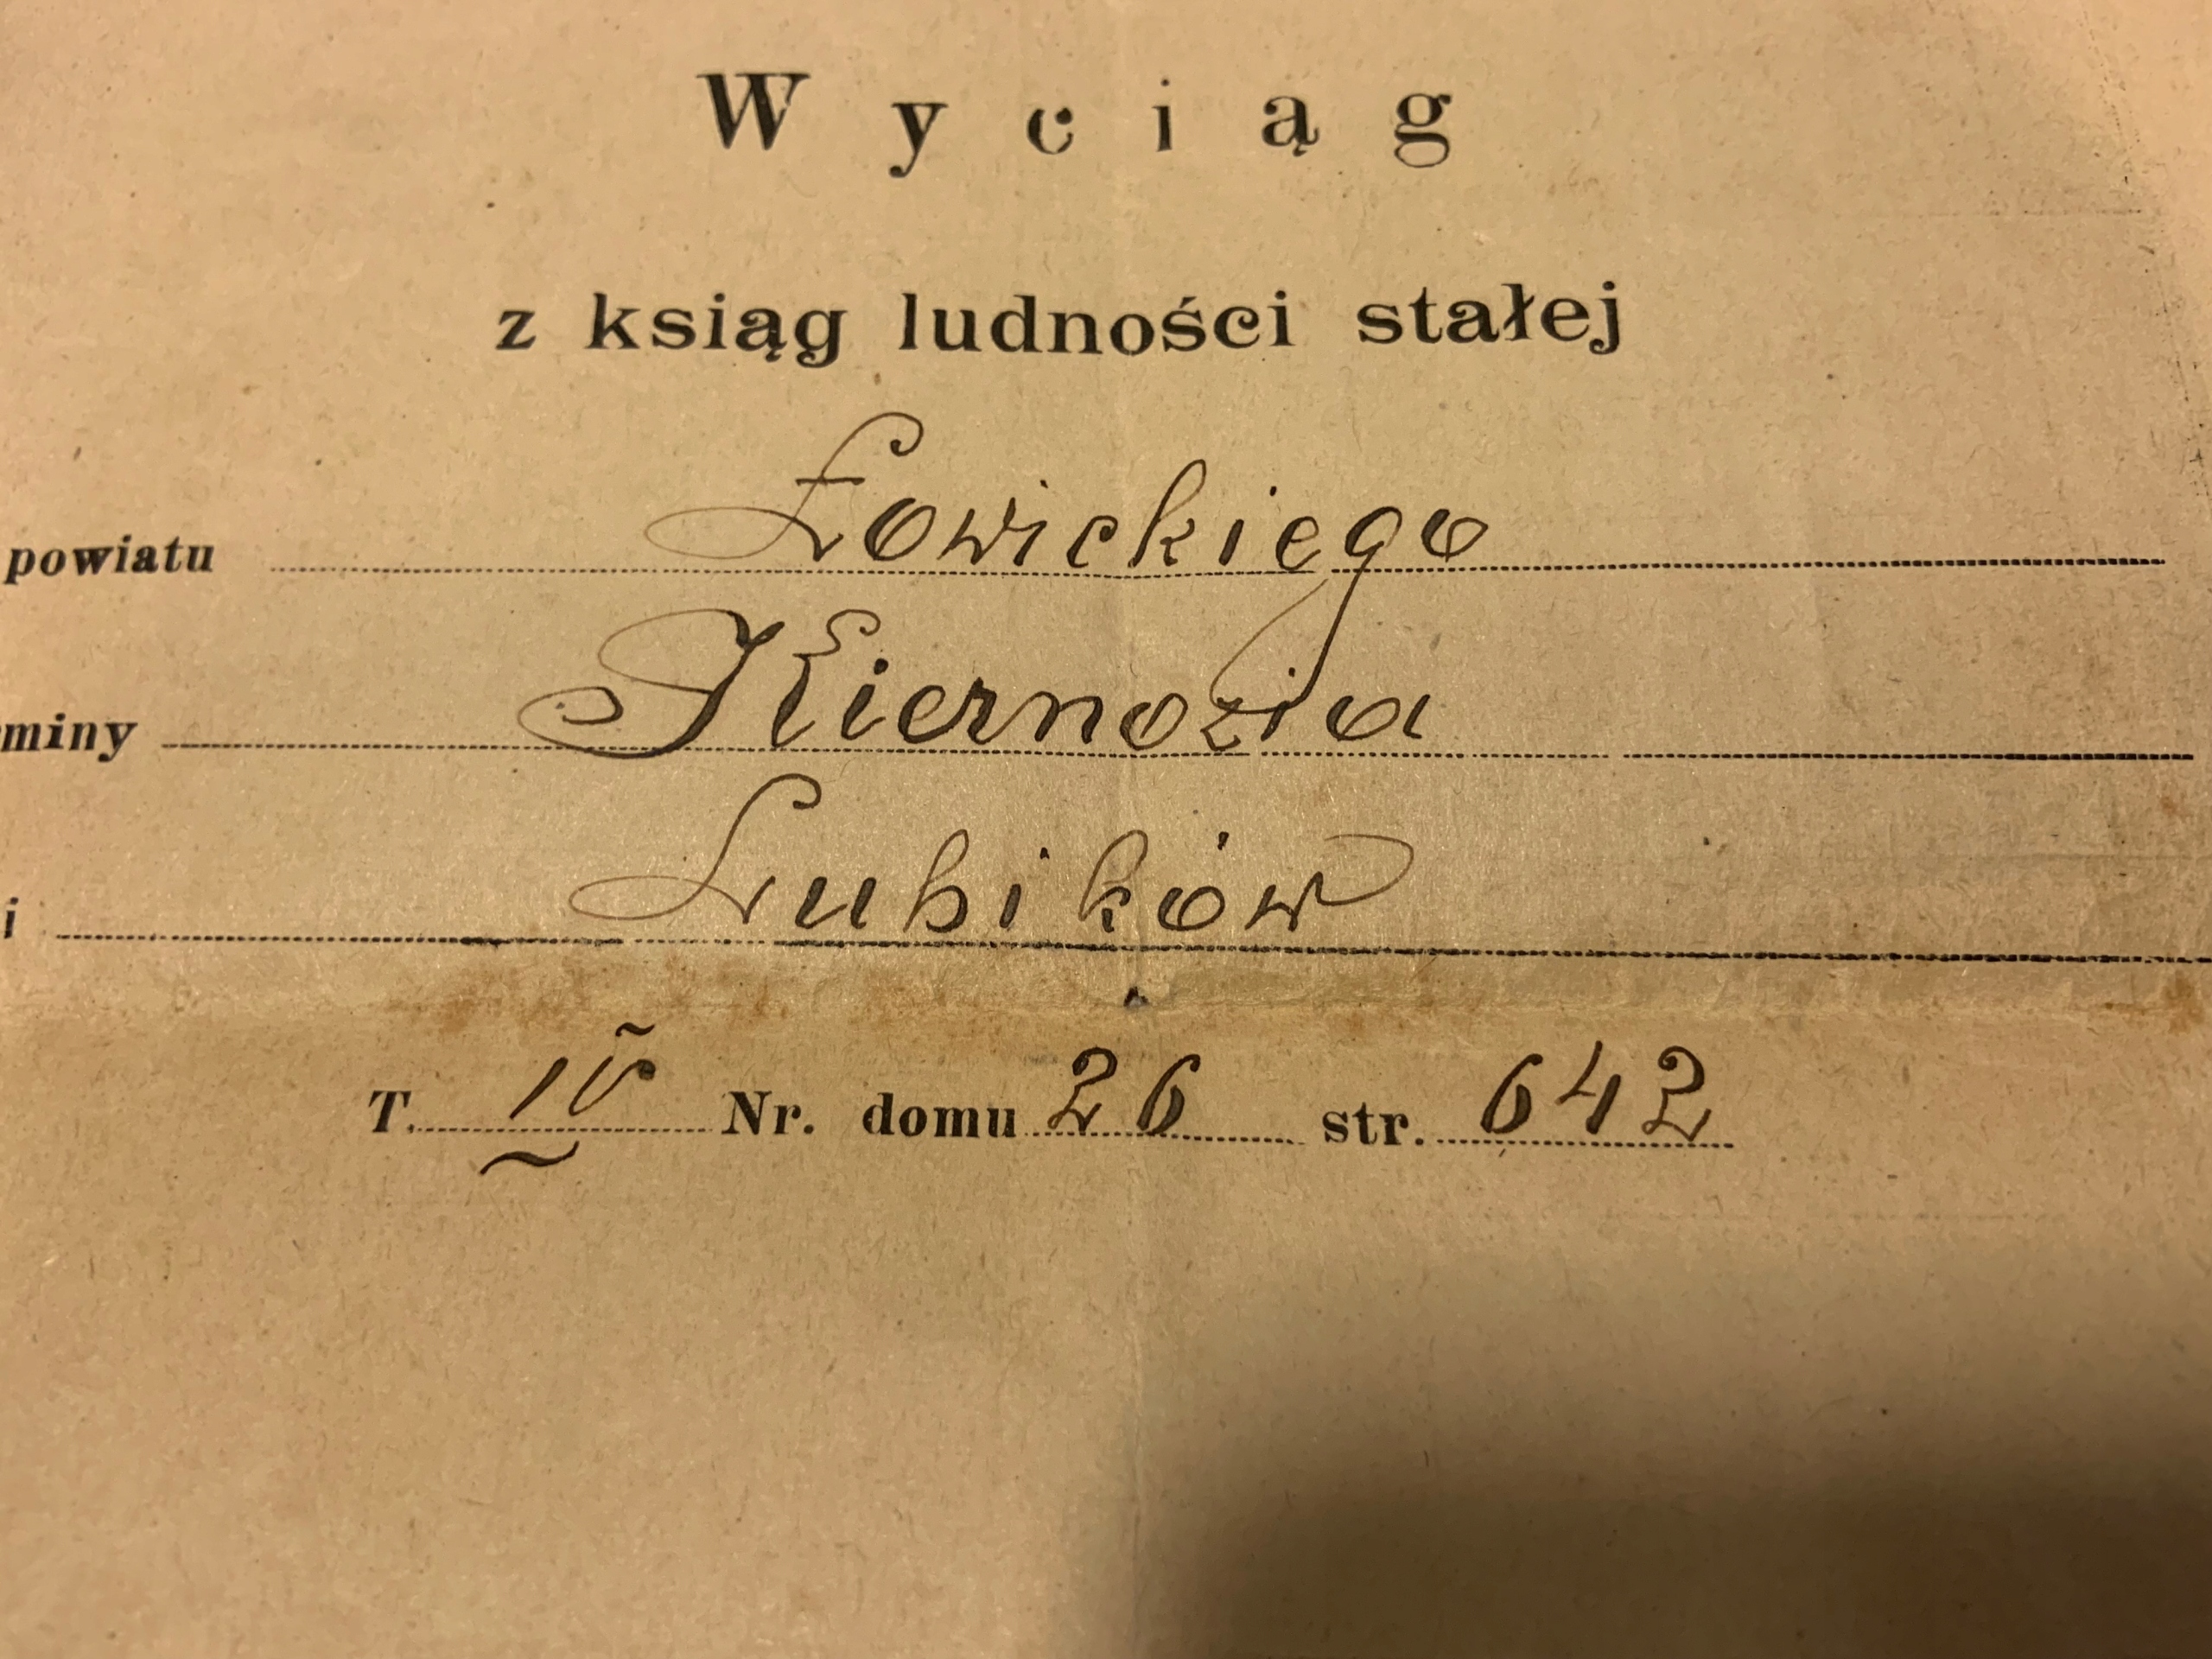 Wyciąg
z ksiąg ludności stałej
powiatu Łowickiego
miny Kiernozia
i Lubików
T. IV Nr. domu 26 str. 642